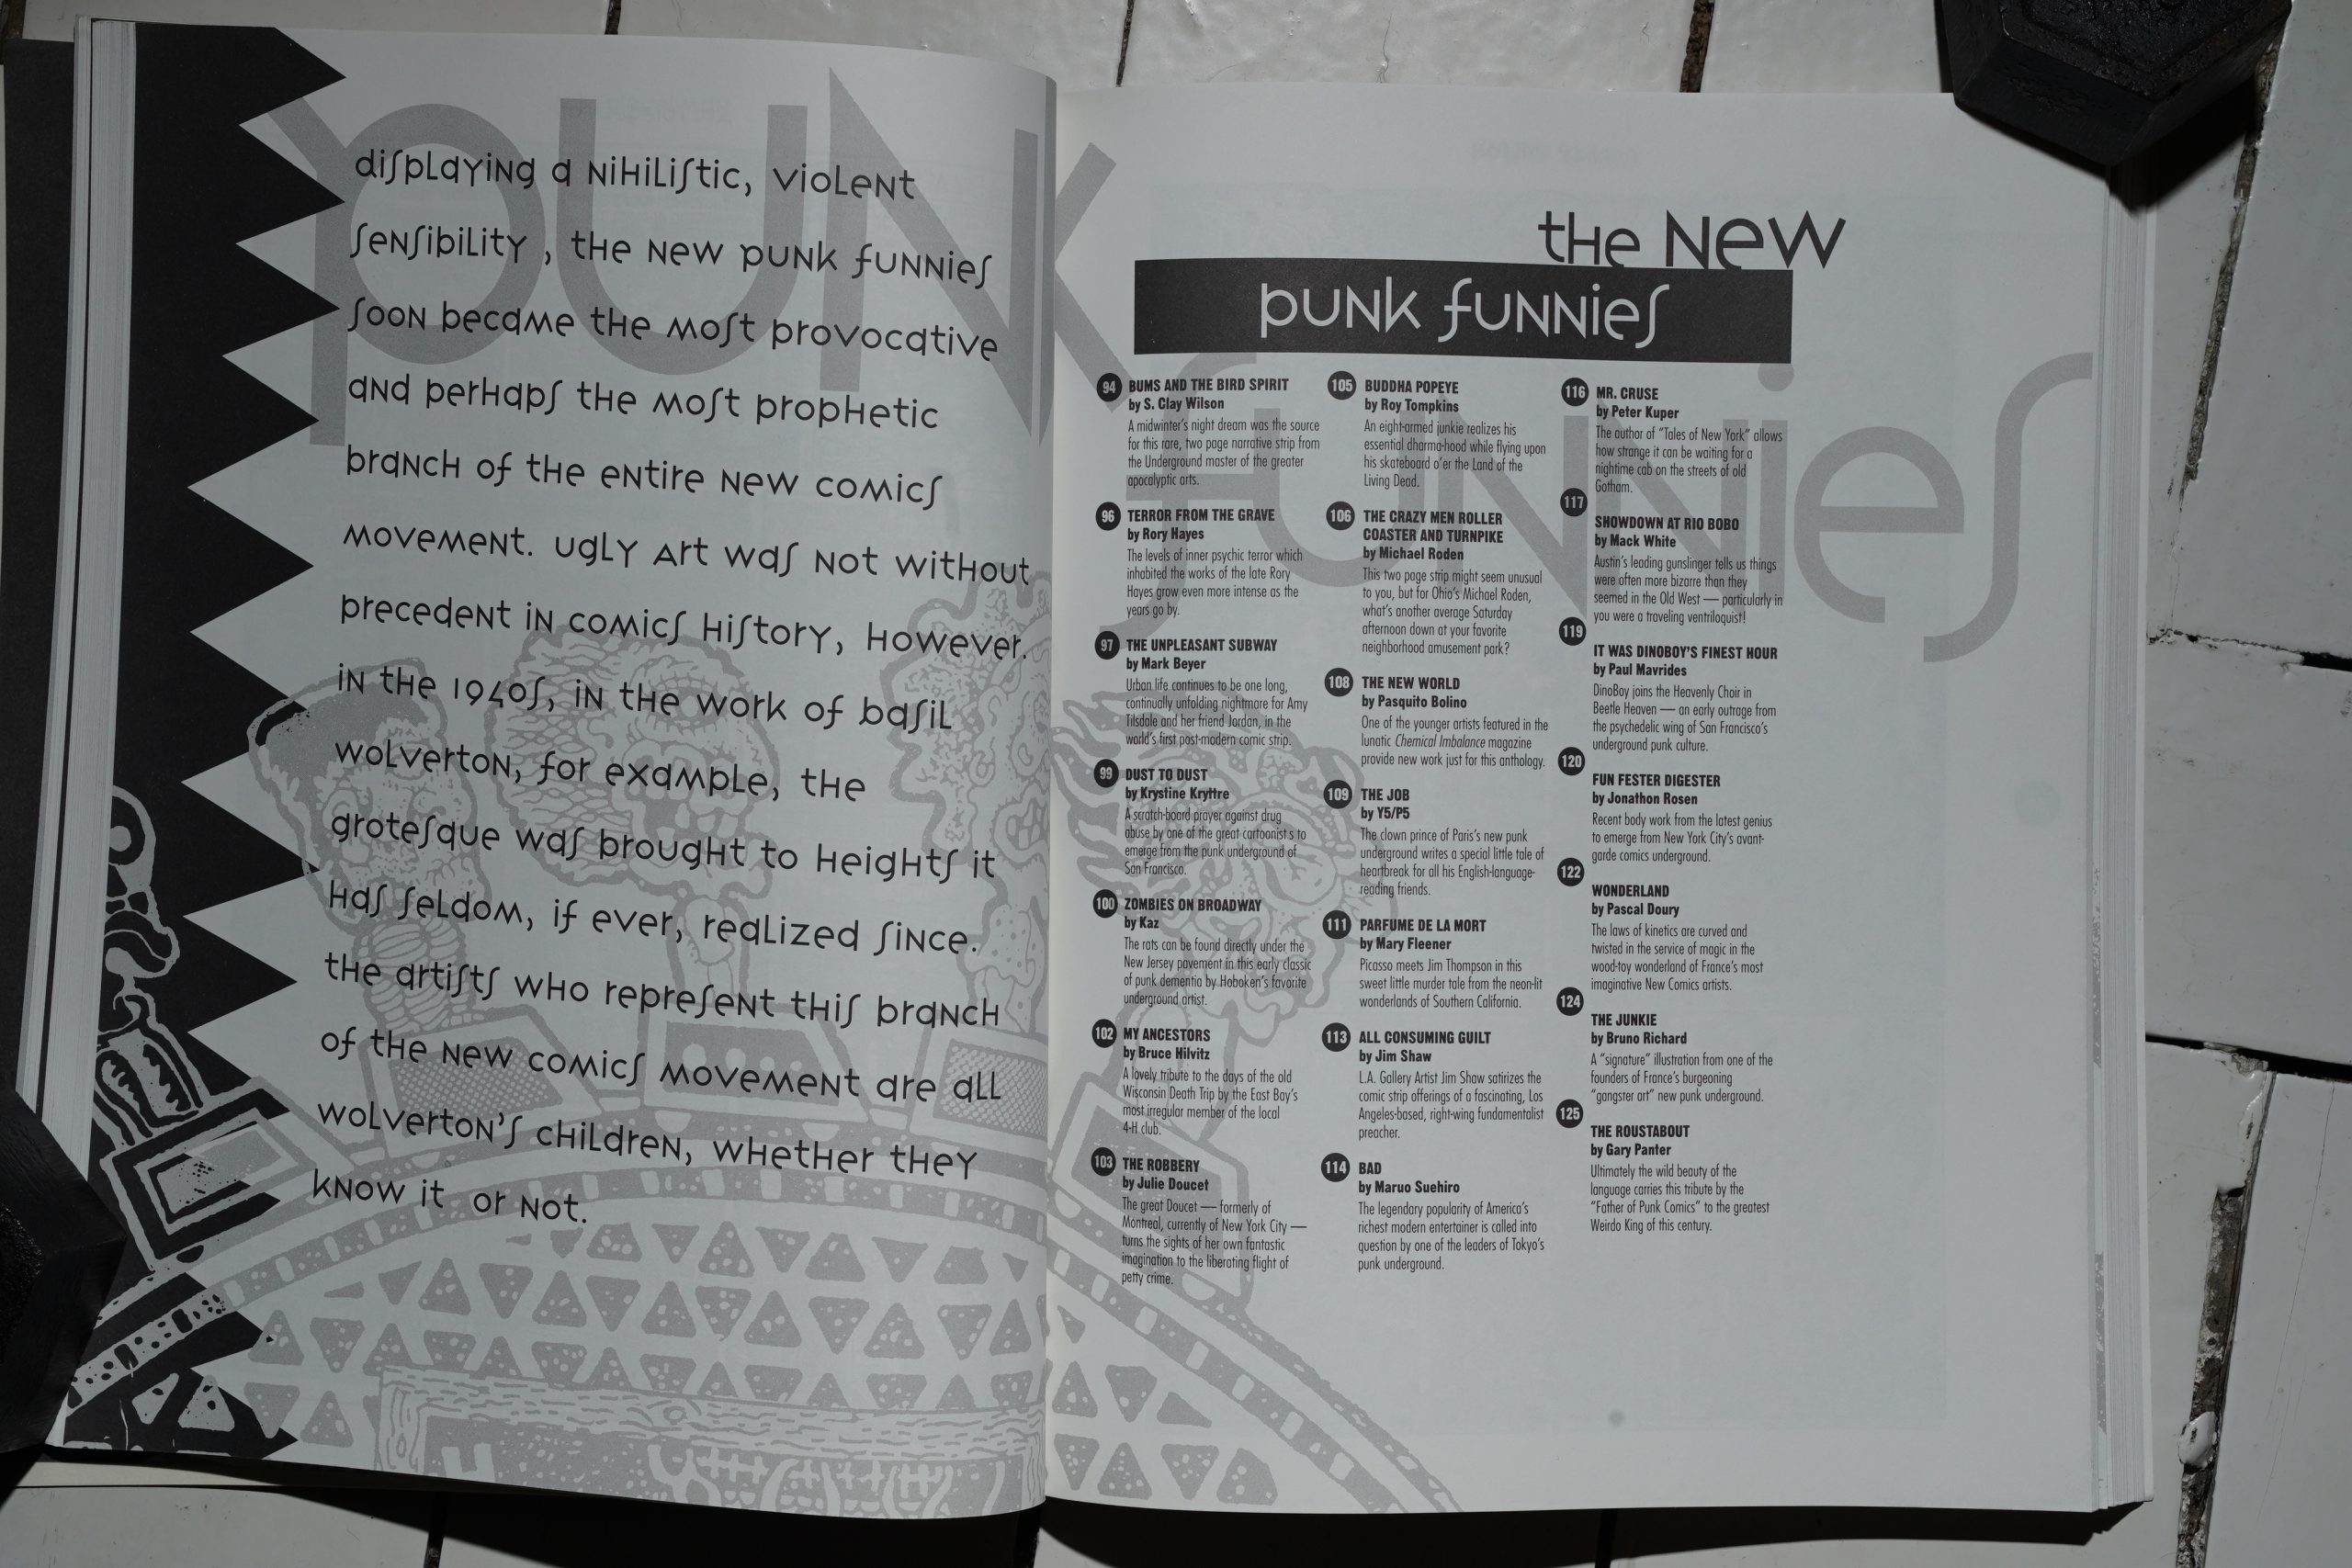 punk
displaying a nihilistic, violent
sensibility , the new punk funnies
soon became the most provocative
and perhaps the most prophetic
branch of the entire new comics
movement. ugly art was not without
precedent in comics history, however.
in the 1940s, in the work of basil
wolverton, for example, the
grotesque was brought to heights it
has seldom, if ever, realized since.
the artists who represent this branch
of the new comics movement are all
wolverton's children, whether they
know it or not.
the new
punk funnies
funnies
94 BUMS AND THE BIRD SPIRIT
by S. Clay Wilson
A midwinter's night dream was the source
for this rare, two page narrative strip from
the Underground master of the greater
apocalyptic arts.
96 TERROR FROM THE GRAVE
by Rory Hayes
The levels of inner psychic terror which
inhabited the works of the late Rory
Hayes grow even more intense as the
years go by.
97 THE UNPLEASANT SUBWAY
by Mark Beyer
Urban life continues to be one long,
continually unfolding nightmare for Amy
Tilsdale and her friend Jordan, in the
world's first post-modern comic strip.
99 DUST TO DUST
by Krystine Kryttre
A scratch-board prayer against drug
abuse by one of the great cartoonist s to
emerge from the punk underground of
San Francisco.
100 ZOMBIES ON BROADWAY
by Kaz
The rats can be found directly under the
New Jersey pavement in this early classic
of punk dementia by Hoboken's favorite
underground artist.
102 MY ANCESTORS
by Bruce Hilvitz
A lovely tribute to the days of the old
Wisconsin Death Trip by the East Bay's
most irregular member of the local
4-H club.
103 THE ROBBERY
by Julie Doucet
The great Doucet — formerly of
Montreal, currently of New York City —
turns the sights of her own fantastic
imagination to the liberating flight of
petty crime.
105 BUDDHA POPEYE
by Roy Tompkins
An eight-armed junkie realizes his
essential dharma-hood while flying upon
his skateboard o'er the Land of the
Living Dead.
106 THE CRAZY MEN ROLLER
COASTER AND TURNPIKE
by Michael Roden
This two page strip might seem unusual
to you, but for Ohio's Michael Roden,
what's another average Saturday
afternoon down at your favorite
neighborhood amusement park?
108 THE NEW WORLD
by Pasquito Bolino
One of the younger artists featured in the
lunatic Chemical Imbalance magazine
provide new work just for this anthology.
109 THE JOB
by Y5/P5
The clown prince of Paris's new punk
underground writes a special little tale of
heartbreak for all his English-language-
reading friends.
111 PARFUME DE LA MORT
by Mary Fleener
Picasso meets Jim Thompson in this
sweet little murder tale from the neon-lit
wonderlands of Southern California.
113 ALL CONSUMING GUILT
by Jim Shaw
L.A. Gallery Artist Jim Shaw satirizes the
comic strip offerings of a fascinating, Los
Angeles-based, right-wing fundamentalist
preacher.
114 BAD
by Maruo Suehiro
The legendary popularity of America's
richest modern entertainer is called into
question by one of the leaders of Tokyo's
punk underground.
116 MR. CRUSE
by Peter Kuper
The author of "Tales of New York" allows
how strange it can be waiting for a
nightime cab on the streets of old
Gotham.
117
SHOWDOWN AT RIO BOBO
by Mack White
Austin's leading gunslinger tells us things
were often more bizarre than they
seemed in the Old West — particularly in
you were a traveling ventriloquist!
119
IT WAS DINOBOY'S FINEST HOUR
by Paul Mavrides
DinoBoy joins the Heavenly Choir in
Beetle Heaven — an early outrage from
the psychedelic wing of San Francisco's
underground punk culture.
120
FUN FESTER DIGESTER
by Jonathon Rosen
Recent body work from the latest genius
to emerge from New York City's avant-
garde comics underground.
122
WONDERLAND
by Pascal Doury
The laws of kinetics are curved and
twisted in the service of magic in the
wood-toy wonderland of France's most
imaginative New Comics artists.
124
THE JUNKIE
by Bruno Richard
A "signature" illustration from one of the
founders of France's burgeoning
"gangster art" new punk underground.
125
THE ROUSTABOUT
by Gary Panter
Ultimately the wild beauty of the
language carries this tribute by the
"Father of Punk Comics" to the greatest
Weirdo King of this century.